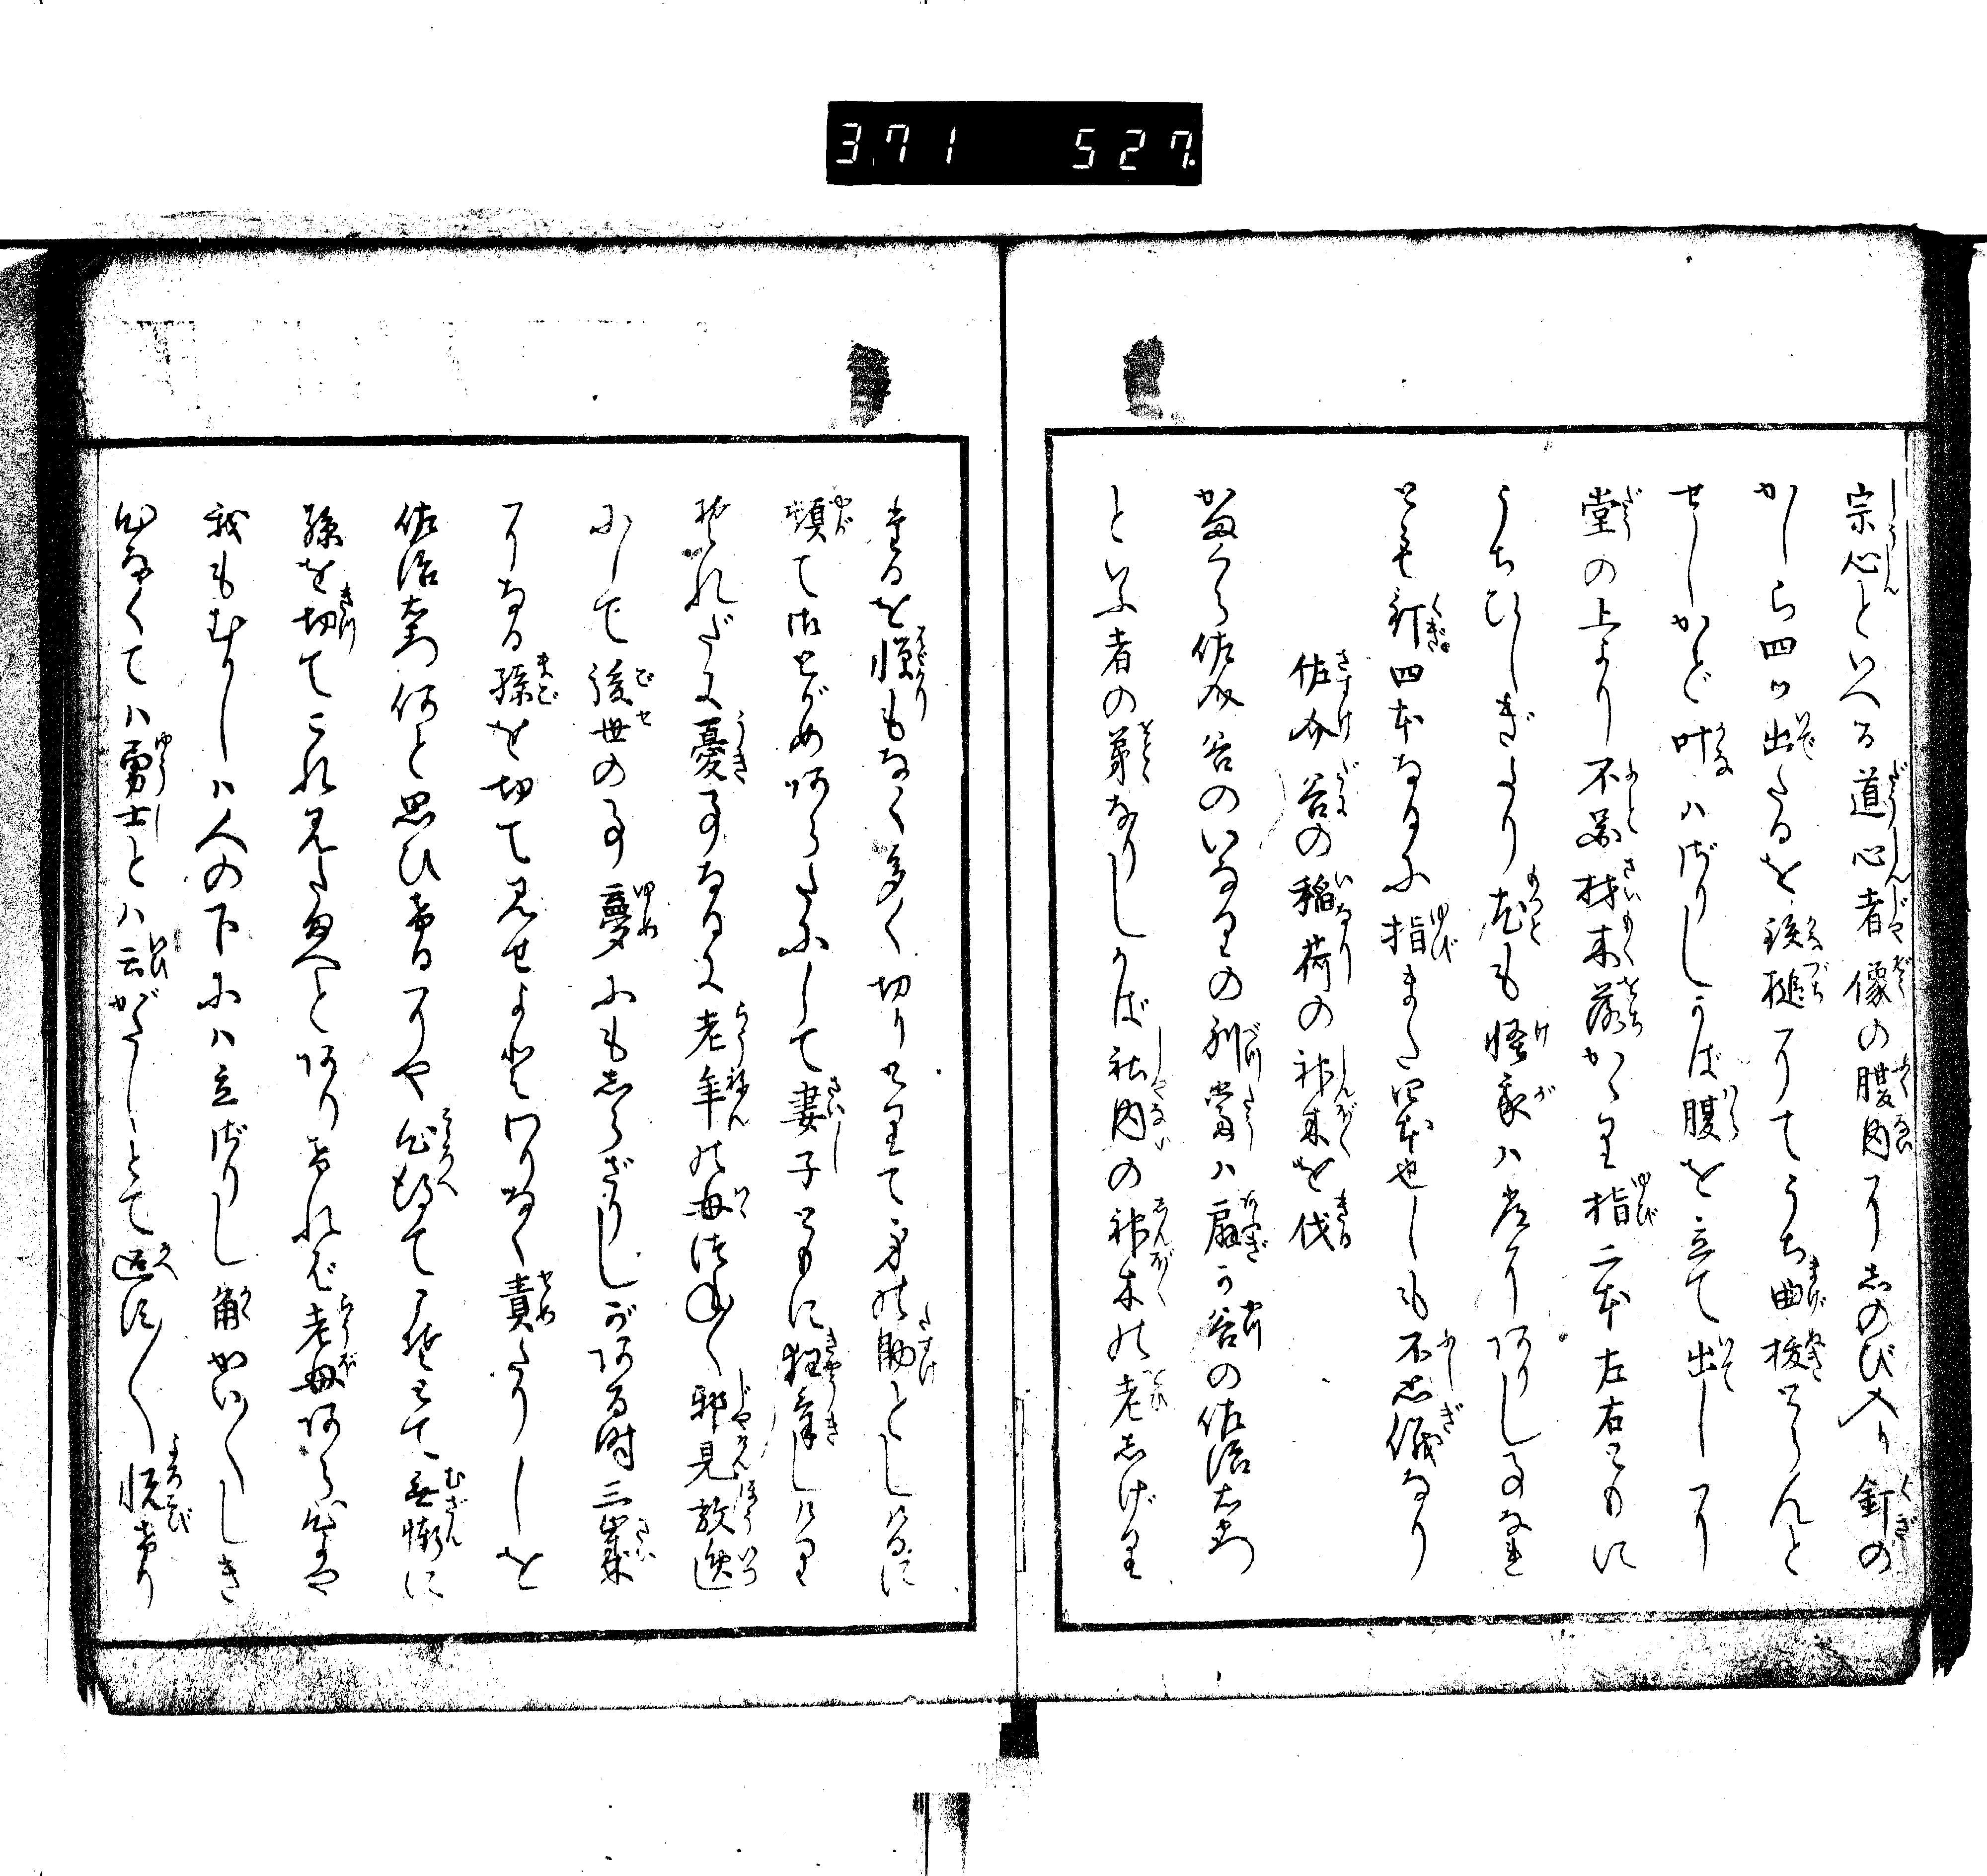 371 527
宗心といへる道心者像の腹内にしのび入り釘の
かしら四ツ出たるを鉄槌にてうち曲抜とらんと
せしかど叶はざりしかば腹を立て出しに
堂の上より不図材木落かゝり指二本左右ともに
うちひしぎたり尤も怪我は左にありし事なれ
ども釘四本なるに指また四本也しも不思儀なり
佐介谷の稲荷の神木を伐
かまくら佐介谷のいなりの別当は扇が谷の佐治右衛門
といふ者の弟なりしかば社内の神木の老しげり
たるを憚もなく多く切りとりて身の助としけるに
頓て御とがめあらたにして妻子ともに狂気しけり
それだに憂事なるに老年の母つよく邪見放逸
にして後世の事夢にもしらざりしがある時三歳
になる孫を切て見せよとわりなく責たりしを
佐治右衛門何と思ひけるにや心得てこそとて無慚に
孫を切てこれ見たまへとありければ老母あら心よや
我もむかしは人の下には立ざりし角かひ〲しき
心なくては勇士とは云がたしとて返す〲悦けり